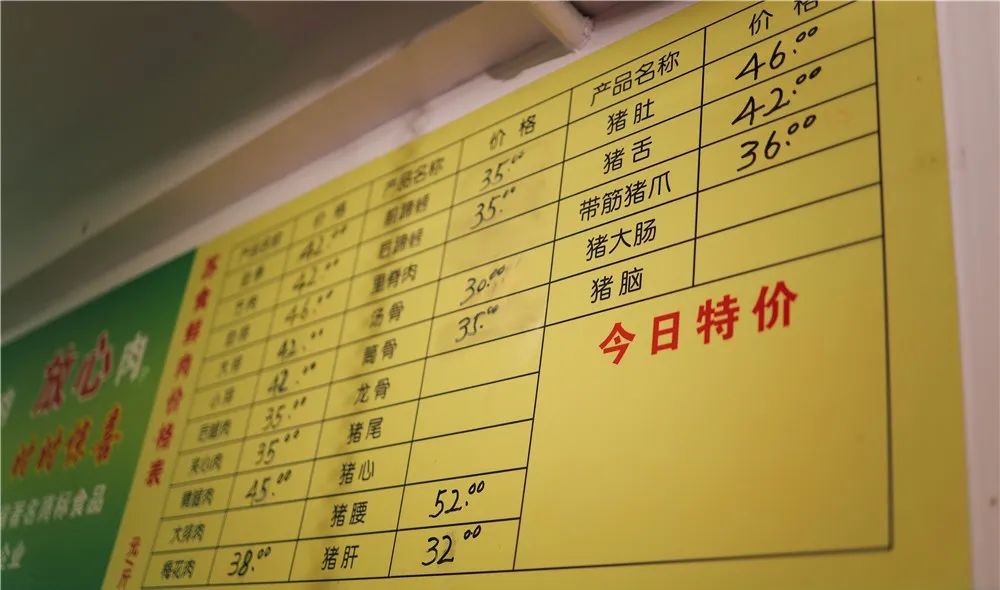 苏食鲜肉价格表
元/斤
放心肉
时时惊喜
著名商标食品
企业
产品名称 价格 产品名称 价格 产品名称 价格
42.00 前蹄膀 35.00 猪肚 46.00
42.00 后蹄膀 35.00 猪舌 42.00
46.00 里脊肉 带筋猪爪 36.00
大排 42.00 汤骨 30.00 猪大肠
小排 42.00 筒骨 35.00 猪脑
后腿肉 35.00 龙骨
夹心肉 35.00 猪尾
精腿肉 45.00 猪心
大排肉 猪腰 52.00
梅花肉 38.00 猪肝 32.00
今日特价